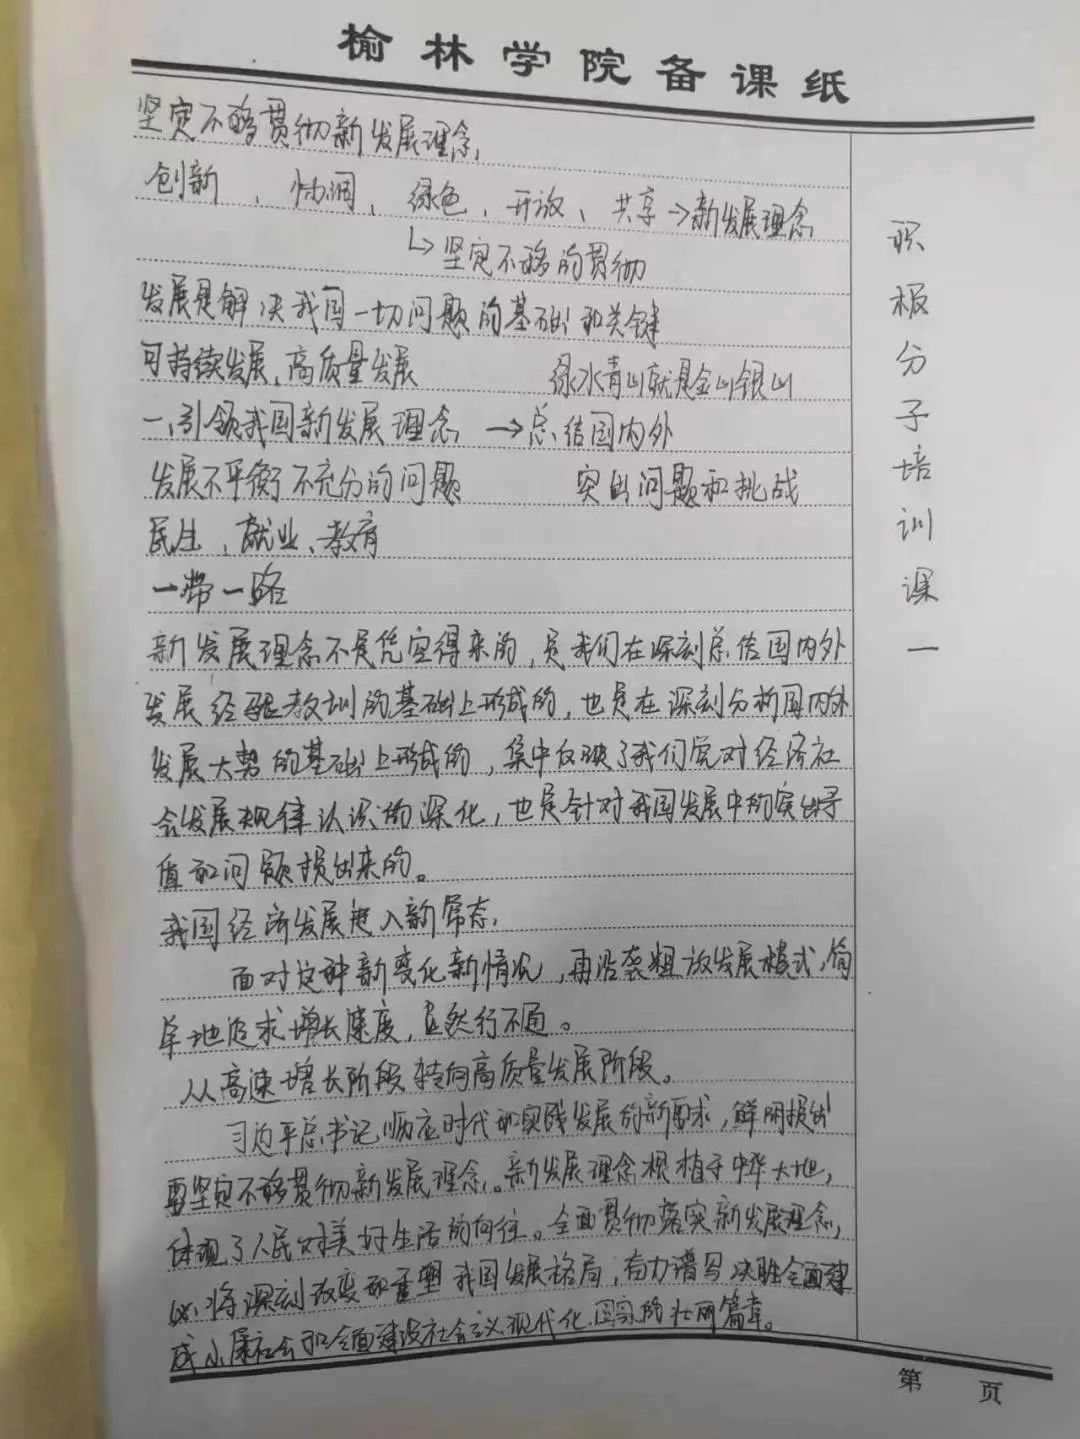 榆林学院备课纸
坚定不移贯彻新发展理念,
创新、协调、绿色、开放、共享→新发展理念
↳坚定不移的贯彻
发展是解决我国一切问题的基础和关键
可持续发展、高质量发展 绿水青山就是金山银山
一、引领我国新发展理念 →总结国内外
发展不平衡不充分的问题 突出问题和挑战
民生、就业、教育
一带一路
新发展理念不是凭空得来的,是我们在深刻总结国内外
发展经验教训的基础上形成的,也是在深刻分析国内外
发展大势的基础上形成的,集中反映了我们党对经济社
会发展规律认识的深化,也是针对我国发展中的突出矛
盾和问题提出来的。
我国经济发展进入新常态,
面对这种新变化新情况,再沿袭粗放发展模式,简
单地追求增长速度,显然行不通。
从高速增长阶段转向高质量发展阶段。
习近平总书记顺应时代和实践发展的新要求,鲜明提出
要坚定不移贯彻新发展理念。新发展理念根植于中华大地,
体现了人民对美好生活的向往。全面贯彻落实新发展理念,
必将深刻改变和重塑我国发展格局,有力谱写决胜全面建
成小康社会和全面建设社会主义现代化国家的壮丽篇章。
积极分子培训课一
第 页